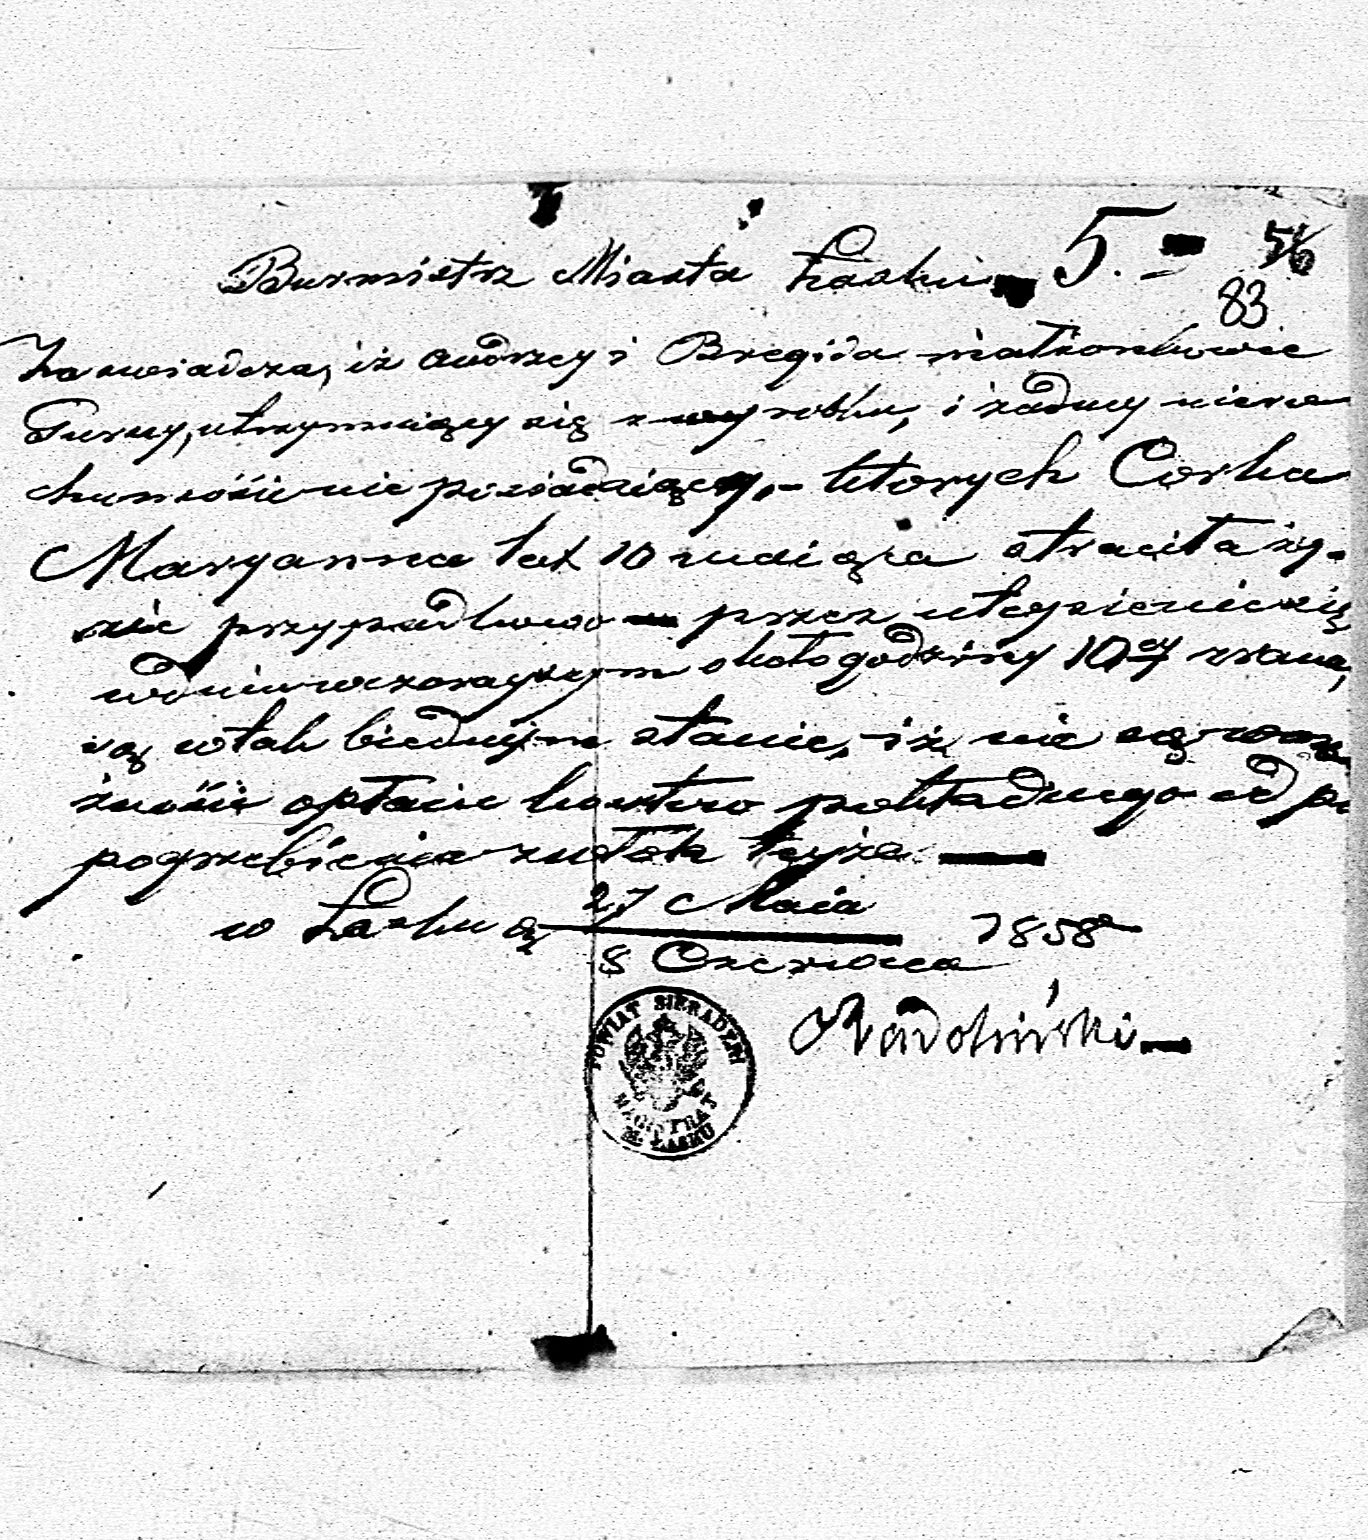 Burmistrz Miasta Łasku 5. 56
83
Zaswiadcza, iż Andrzey i Bregida małżonkowie
Turscy, utrzymuiący się z wyrobku, i żadney nieru
chomości nie posiadaiący, - ktorych Corka
Maryanna lat 10 maiąca straciła ży-
cie przypadkowo przez utopienie się
w dniu wczorayszym około godziny 10ey zrana,
są w tak biednym stanie, iż nie są w mo
żności opłacić kosztów pokładnego od po
pogrzebienia zwłok teyże.
w Łasku dn 27 Maia 1858
8 Czerwca
Radoliński
POWIAT SIERADZKI
MAGISTRAT
M. ŁASKU